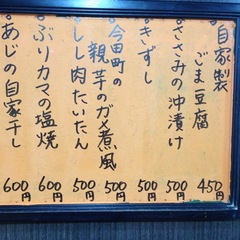 自家製
ごま豆腐 450円
ささみの沖漬け 500円
きずし 500円
今田町の
親芋のガメ煮風 500円
しし肉たいたん 500円
ぶりカマの塩焼 600円
あじの自家干し 600円